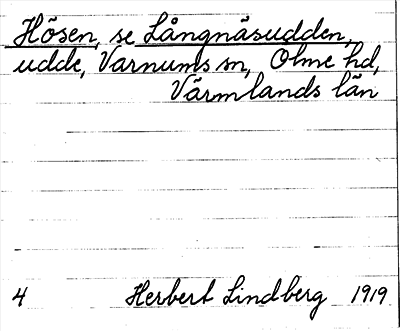 Hösen, se Långnäsudden,
udde, Varnums sn, Ölme hd,
Värmlands län
4 Herbert Lindberg 1919